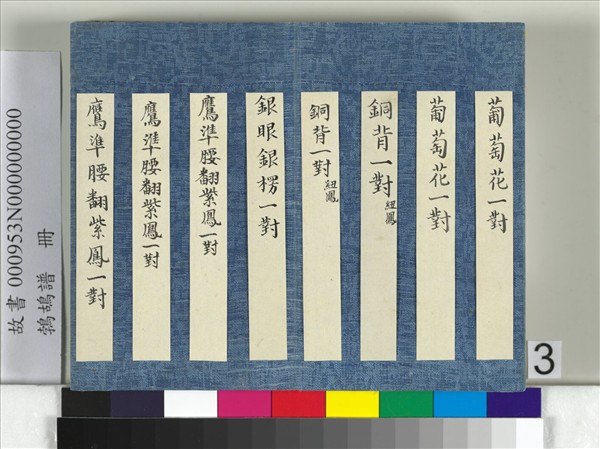 葡萄花一對
葡萄花一對
銅背一對紐鳳
銅背一對紐鳳
銀眼銀楞一對
鷹準腰翻紫鳳一對
鷹準腰翻紫鳳一對
鷹準腰翻紫鳳一對
故書 000953N000000000
鵓鴣譜 冊
3